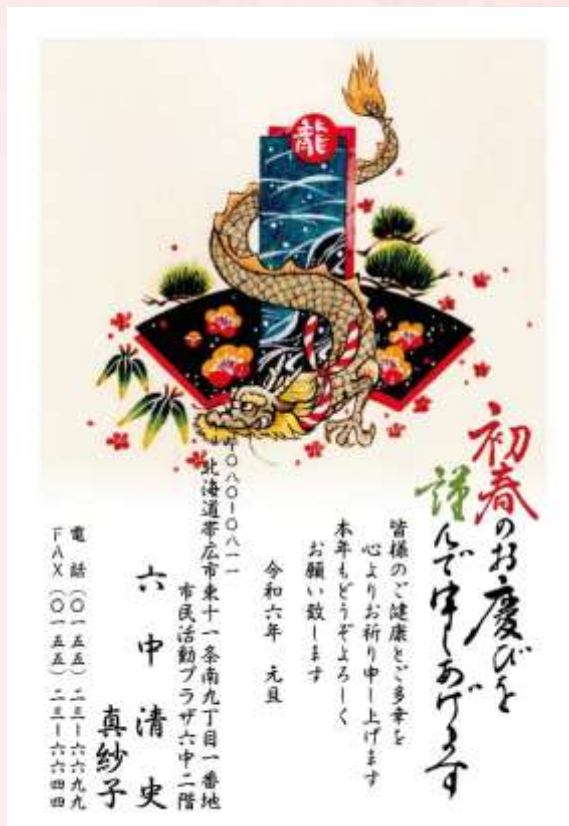 龍
初春のお慶びを
謹んで申しあげます
皆様のご健康とご多幸を
心よりお祈り申し上げます
本年もどうぞよろしく
お願い致します
令和六年 元旦
〒〇八〇ー〇八一一
北海道帯広市東十一条南九丁目一番地
市民活動プラザ六中二階
六中清史
真紗子
電話(〇一五五)二三ー六六九九
FAX(〇一五五)二三ー六六四四